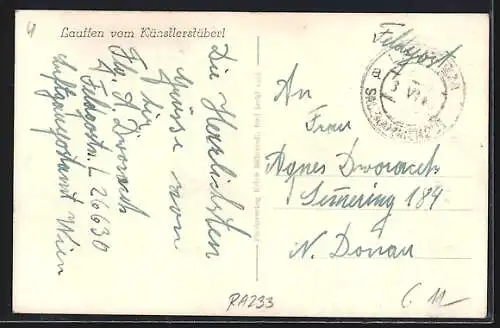 4
Lauffen vom Künstlerstüberl
Die Herzlichsten
Grüsse von
dir
Flg. A. Dworach
Feldpostn. L 26630
Luftgaupostamt Wien
Feldpost
An
Frau
Agnes Dworach
Semering 184
N. Donau
RA233
C 11